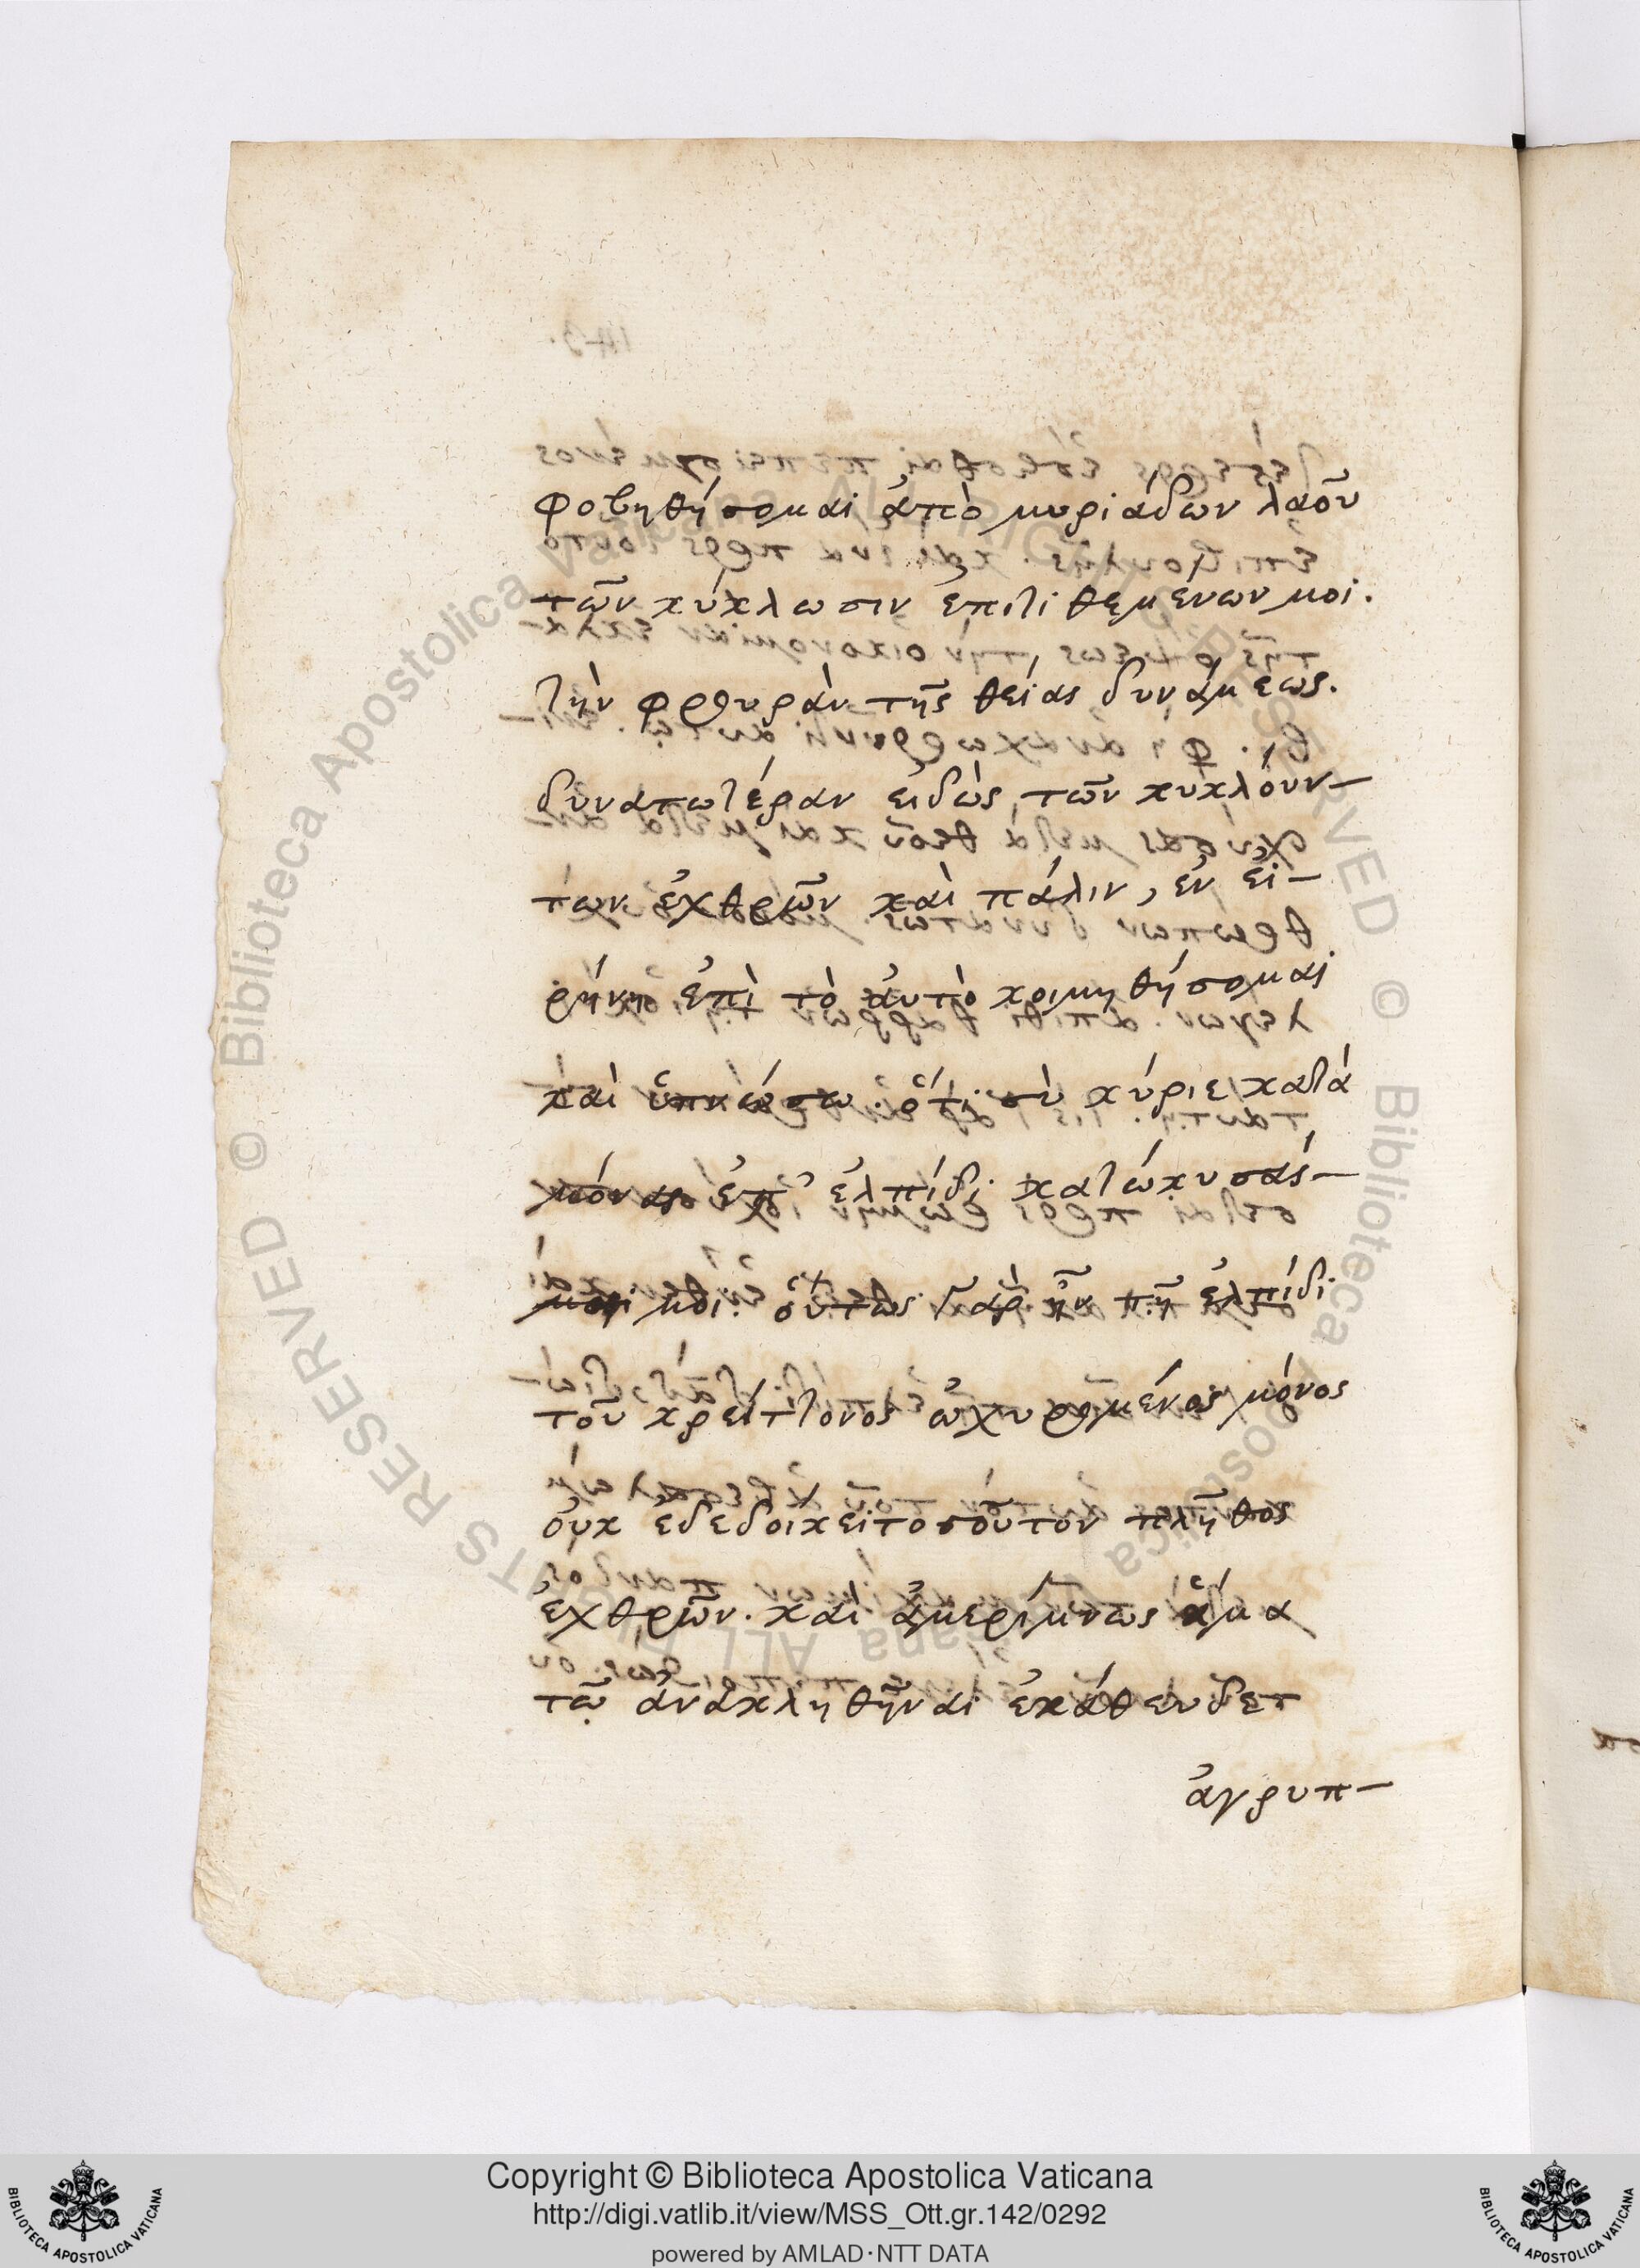 φοβηθήσομαι ἀπὸ μυριάδων λαοῦ
τῶν κύκλωσιν ἐπιτιθεμένων μοι.
τὴν φρουρὰν τῆς θείας δυνάμεως.
δυνατωτέραν εἰδὼς τῶν κυκλούν-
των ἐχθρῶν καὶ πάλιν, ἐν εἰ-
ρήνη ἐπὶ τὸ αὐτὸ κοιμηθήσομαι
καὶ ὑπνώσω. ὅτι σὺ κύριε κατὰ
μόνας ἐπ' ἐλπίδι κατώκισάς-
μοι. οὕτως γὰρ ἦν τῆ ἐλπίδι
τοῦ κρείττονος ὠχυρωμένος μόνος
οὐκ ἐδεδοίκει τοσοῦτον πλῆθος
ἐχθρῶν. καὶ ἀμερίμνως ἅμα
τῷ ἀνακληθῆναι ἐκάθευδεν
ἀγρυπ-
Copyright © Biblioteca Apostolica Vaticana
http://digi.vatlib.it/view/MSS_Ott.gr.142/0292
powered by AMLAD·NTT DATA
BIBLIOTECA APOSTOLICA VATICANA
BIBLIOTECA APOSTOLICA VATICANA